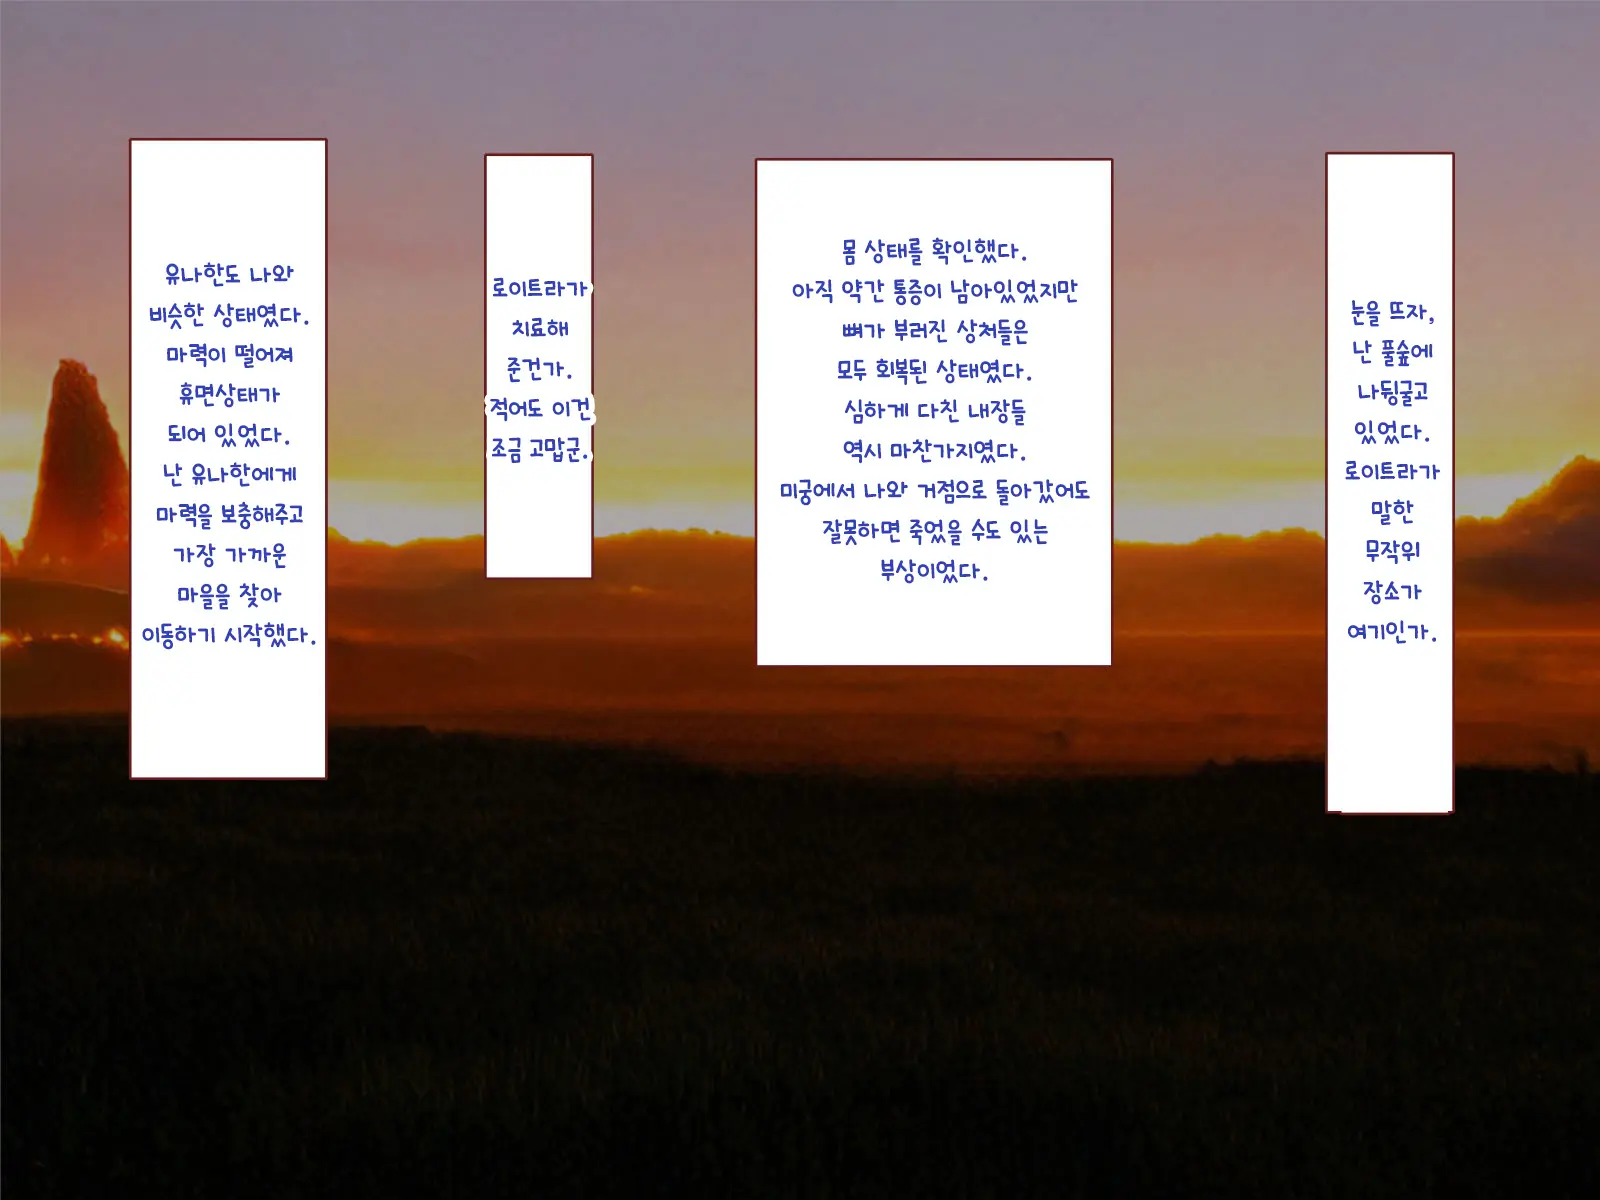 눈을 뜨자,
난 풀숲에
나뒹굴고
있었다.
로이트라가
말한
무작위
장소가
여기인가.
몸 상태를 확인했다.
아직 약간 통증이 남아있었지만
뼈가 부러진 상처들은
모두 회복된 상태였다.
심하게 다친 내장들
역시 마찬가지였다.
미궁에서 나와 거점으로 돌아갔어도
잘못하면 죽었을 수도 있는
부상이었다.
로이트라가
치료해
준건가.
적어도 이건
조금 고맙군.
유나한도 나와
비슷한 상태였다.
마력이 떨어져
휴면상태가
되어 있었다.
난 유나한에게
마력을 보충해주고
가장 가까운
마을을 찾아
이동하기 시작했다.